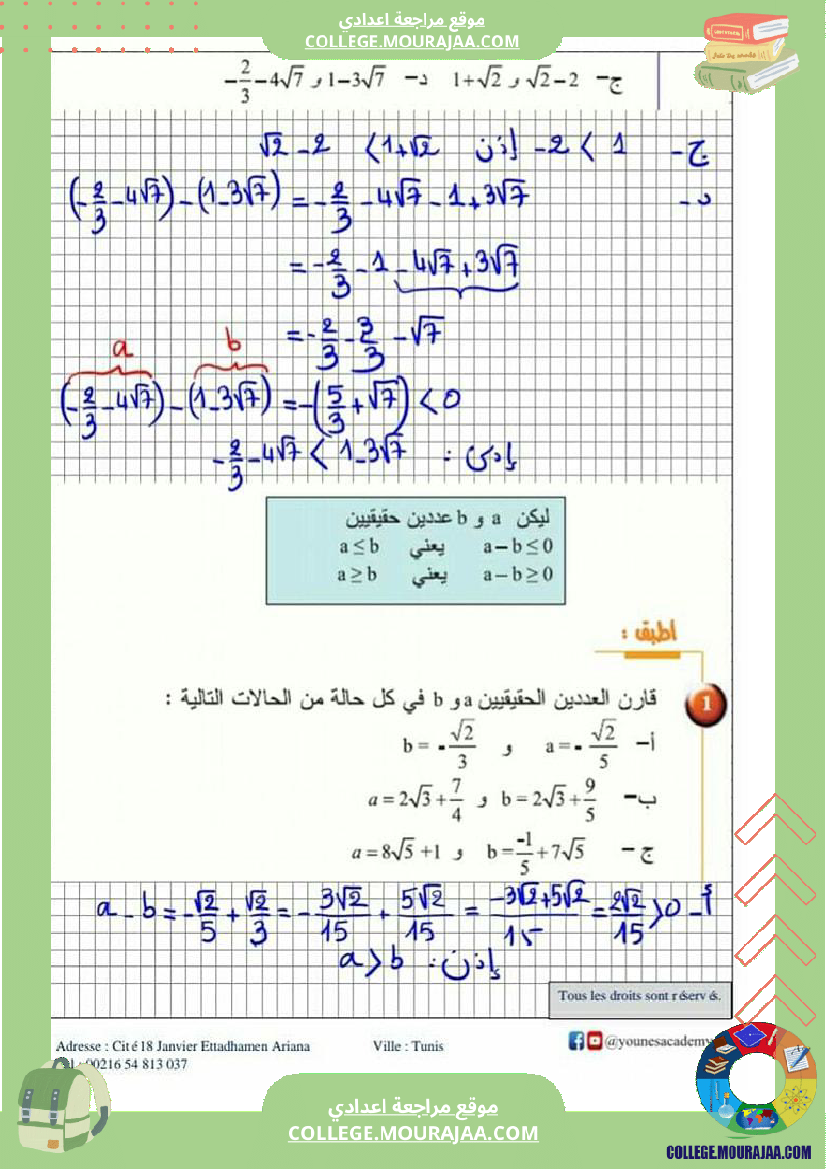 موقع مراجعة اعدادي
COLLEGE.MOURAJAA.COM
ج- √2−2 و 1+√2 د- 1−3√7 و −2/3−4√7
ج- 1 > 2- إذن √2 − 2 < 1+√2
د- (−2/3 − 4√7) − (1 − 3√7) = −2/3 − 4√7 − 1 + 3√7
= −2/3 − 1 − 4√7 + 3√7
= −2/3 − 3/3 − √7
a b
(−2/3 − 4√7) − (1 − 3√7) = −(5/3 + √7) < 0
إذن : −2/3 − 4√7 < 1 − 3√7
ليكن a و b عددين حقيقيين
a−b≤0 يعني a≤b
a−b≥0 يعني a≥b
أطبق :
1
قارن العددين الحقيقيين a و b في كل حالة من الحالات التالية :
أ- a = −√2/5 و b = −√2/3
ب- b = 2√3+9/5 و a = 2√3+7/4
ج- b = −1/5+7√5 و a = 8√5+1
أ- a − b = −√2/5 + √2/3 = −3√2/15 + 5√2/15 = −3√2+5√2/15 = 2√2/15 > 0
إذن : a > b
Tous les droits sont réservés.
Adresse : Cité 18 Janvier Ettadhamen Ariana Ville : Tunis @younesacademy
00216 54 813 037
موقع مراجعة اعدادي
COLLEGE.MOURAJAA.COM
COLLEGE.MOURAJAA.COM